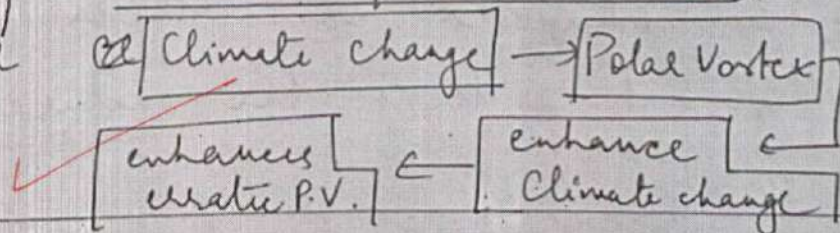 Climate change → Polar Vortex
enhances ← enhance
erratic P.V. Climate change